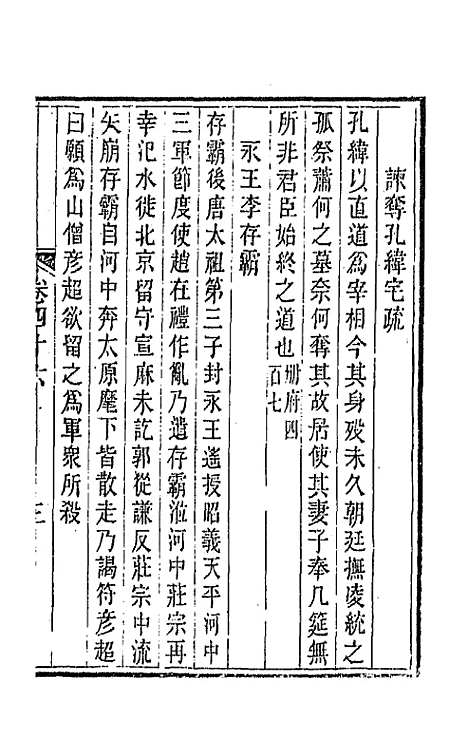 諫奪孔緯宅疏
孔緯以直道爲宰相今其身歿未久朝廷撫凌統之
孤祭蕭何之墓奈何奪其故居使其妻子奉几筵無
所非君臣始終之道也册府四百七
永王李存霸
存霸後唐太祖第三子封永王遙授昭義天平河中
三軍節度使趙在禮作亂乃遣存霸涖河中莊宗再
幸汜水徙北京留守宣麻未訖郭從謙反莊宗中流
矢崩存霸自河中奔太原麾下皆散走乃謁符彥超
曰願爲山僧彥超欲留之爲軍衆所殺
卷四十六
三